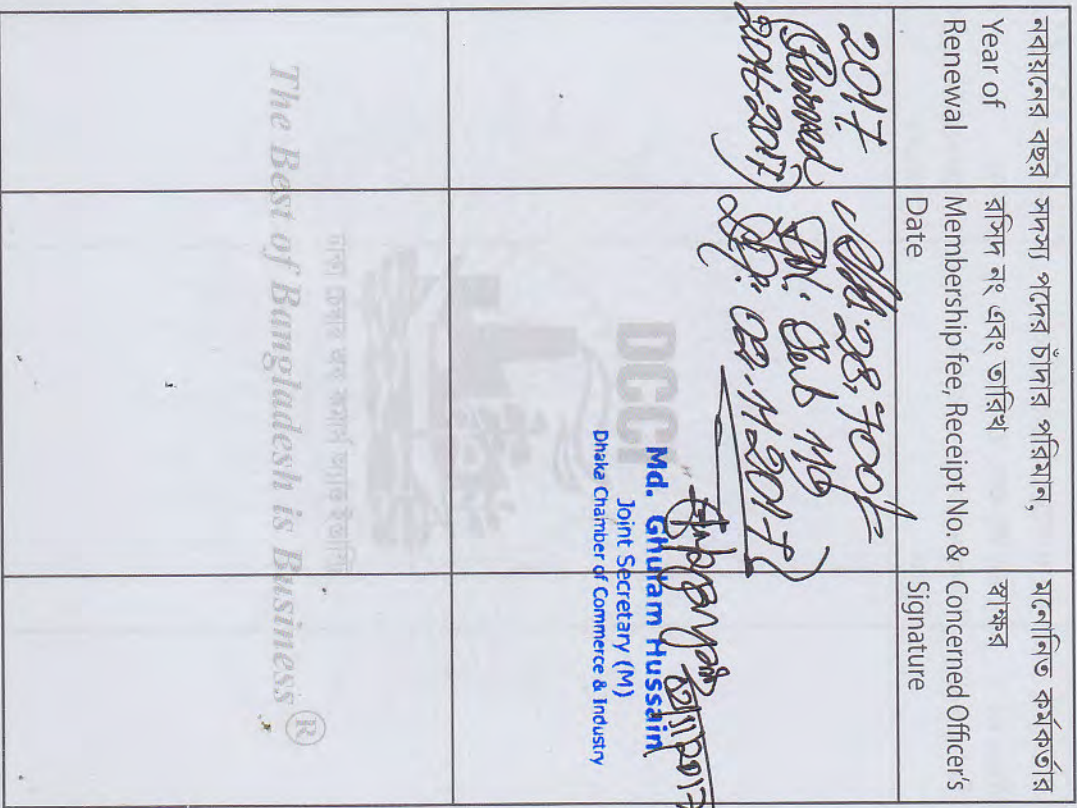 নবায়নের বছর
Year of
Renewal
সদস্য পদের চাঁদার পরিমান,
রসিদ নং এবং তারিখ
Membership fee, Receipt No. &
Date
মনোনিত কর্মকর্তার
স্বাক্ষর
Concerned Officer's
Signature
2017
(Renewed
2016-2017)
28,700/-
02.11.2017
Md. Ghulam Hussain
Joint Secretary (M)
Dhaka Chamber of Commerce & Industry
DCCI
The Best of Bangladesh is Business ®